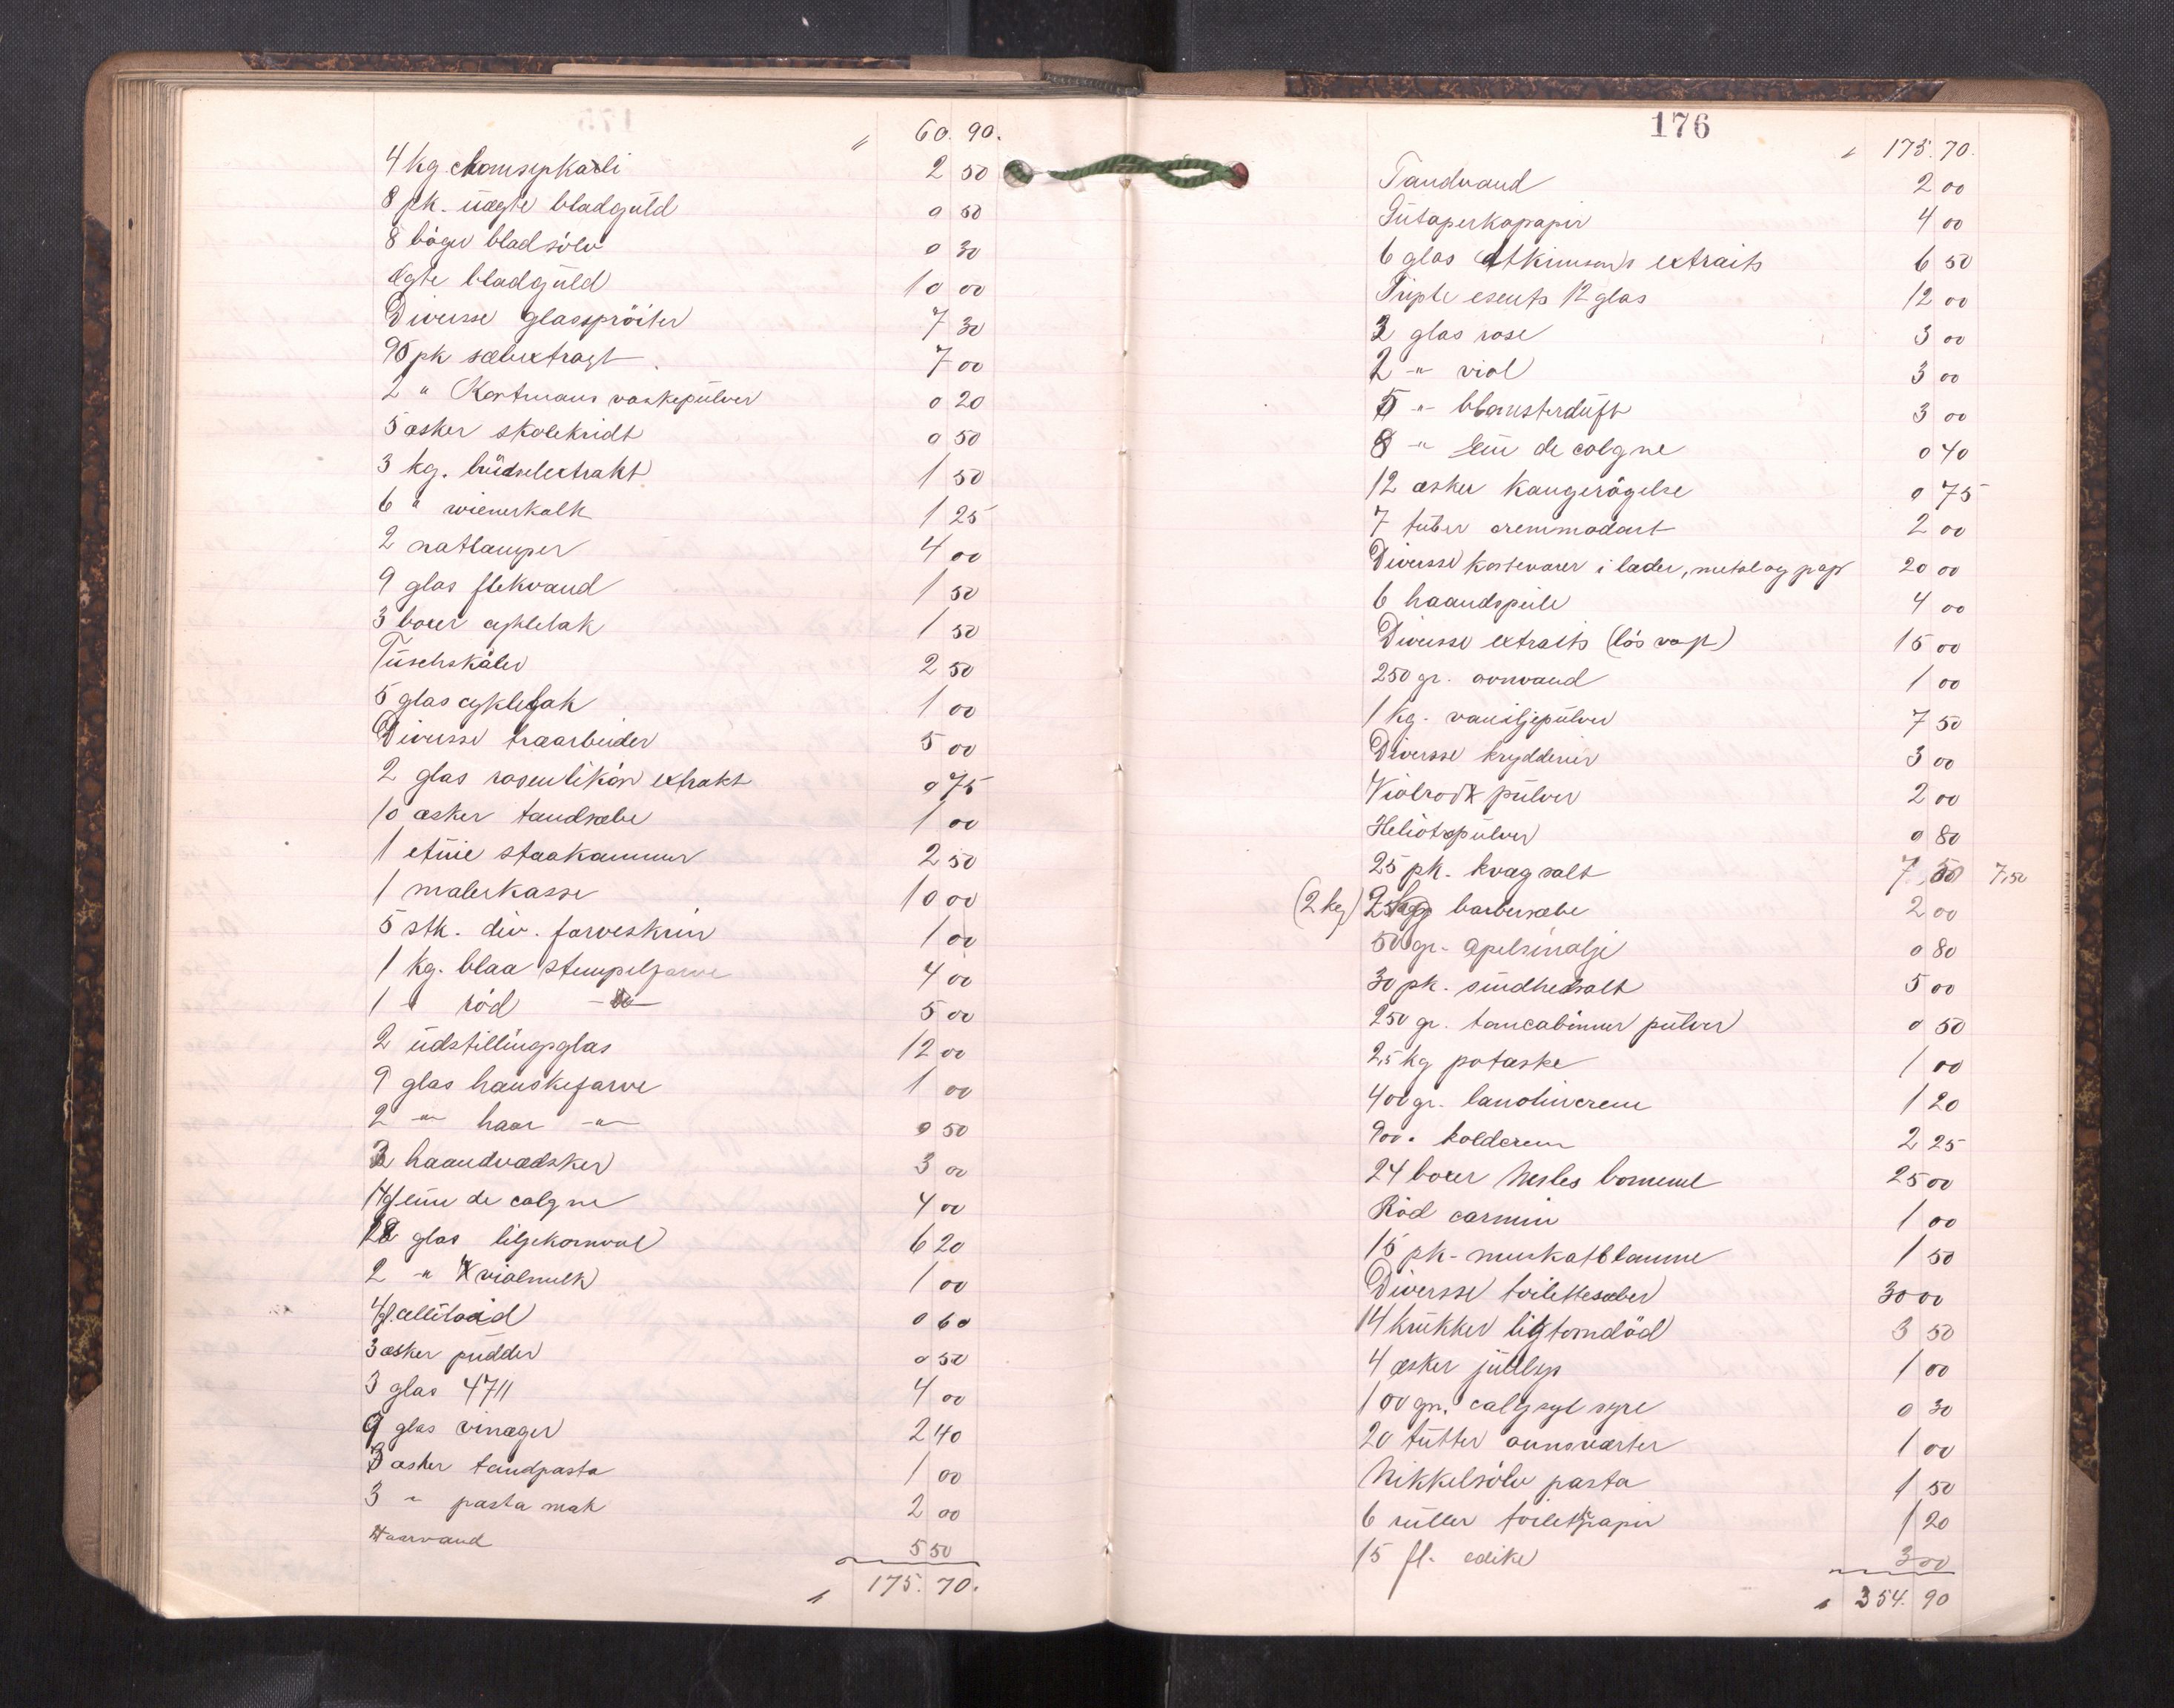 " 60.90.
4 kg. chomsepkali 2 50
8 pk. üægte bladgüld 0 50
8 böger bladsölv 0 30
Ægte bladgüld 10 00
Diverse glasspröiter 7 30
95 pk sæbextragt 7 00
2 " Kortmans vaskepülver 0 20
5 æsker skolekridt 0 50
3 kg. brüdselextrakt 1 50
6 " wienerkalk 1 25
2 natlamper 4 00
9 glas flekvand 1 50
3 boxer cyklelak 1 50
Tüschskåler 2 50
5 glas cyklelak 1 00
Diverse træarbeider 5 00
2 glas rosenlikör extrakt 0 75
10 æsker tandsæbe 1 00
1 etüie staakammer 2 50
1 malerkasse 10 00
5 stk. div. farveskrin 1 00
1 kg. blaa stempelfarve 4 00
1 " röd - do - 5 00
2 üdstillingsglas 12 00
9 glas hanskefarve 1 00
2 -"- haar -"- 0 50
3 haandvædsker 3 00
14 gl eüu de colgne 4 00
12 glas liljekonval 6 20
2 -"- violmelk 1 00
4 gl. cellüloid 0 60
3 æsker pudder 0 50
3 glas 4711 4 00
9 glas vinæger 2 40
3 æsker tandpasta 1 00
3 -"- pasta mak 2 00
Haarvand 5 50
175.70.
176
175.70.
Tandvand 2 00
Gütaperkapapir 4 00
6 glas Atkinsons extraits 6 50
Triple esents 12 glas 12 00
3 glas rose 3 00
2 -"- viol 3 00
5 -"- blomsterdüft 3 00
8 -"- Eau de colgne 0 40
12 æsker Kongerögelse 0 75
7 tüber cremmodart 2 00
Diverse kortevarer i læder, metal og pap 20 00
6 haandspeile 4 00
Diverse extraits (lös vap) 15 00
250 gr. ovnvand 1 00
1 kg. vaniljepülver 7 50
Diversse krydderier 3 00
Violrodt pülver 2 00
Heliotroppülver 0 80
25 pk. kvægsalt 7 50 7,50
(2 kg) barbersæbe 2 00
50 gr. apelsinolje 0 80
30 pk. sündhedsalt 5 00
250 gr. toncabönner pülver 0 50
2,5 kg potaske 1 00
400 gr. lanolincrem 1 20
900 " koldcrem 2 25
24 boxer Nestes bornemel 25 00
Röd carmin 1 00
15 pk. muskatblomme 1 50
Diversse toilettesæber 30 00
14 krükker ligtorndöd 3 50
4 æsker jüllys 1 00
100 gr. calysyl syre 0 30
20 tütter ovnsværter 1 00
Nikkelsölv pasta 1 50
6 rüller toiletpapir 1 20
15 fl. edike 3 00
354.90